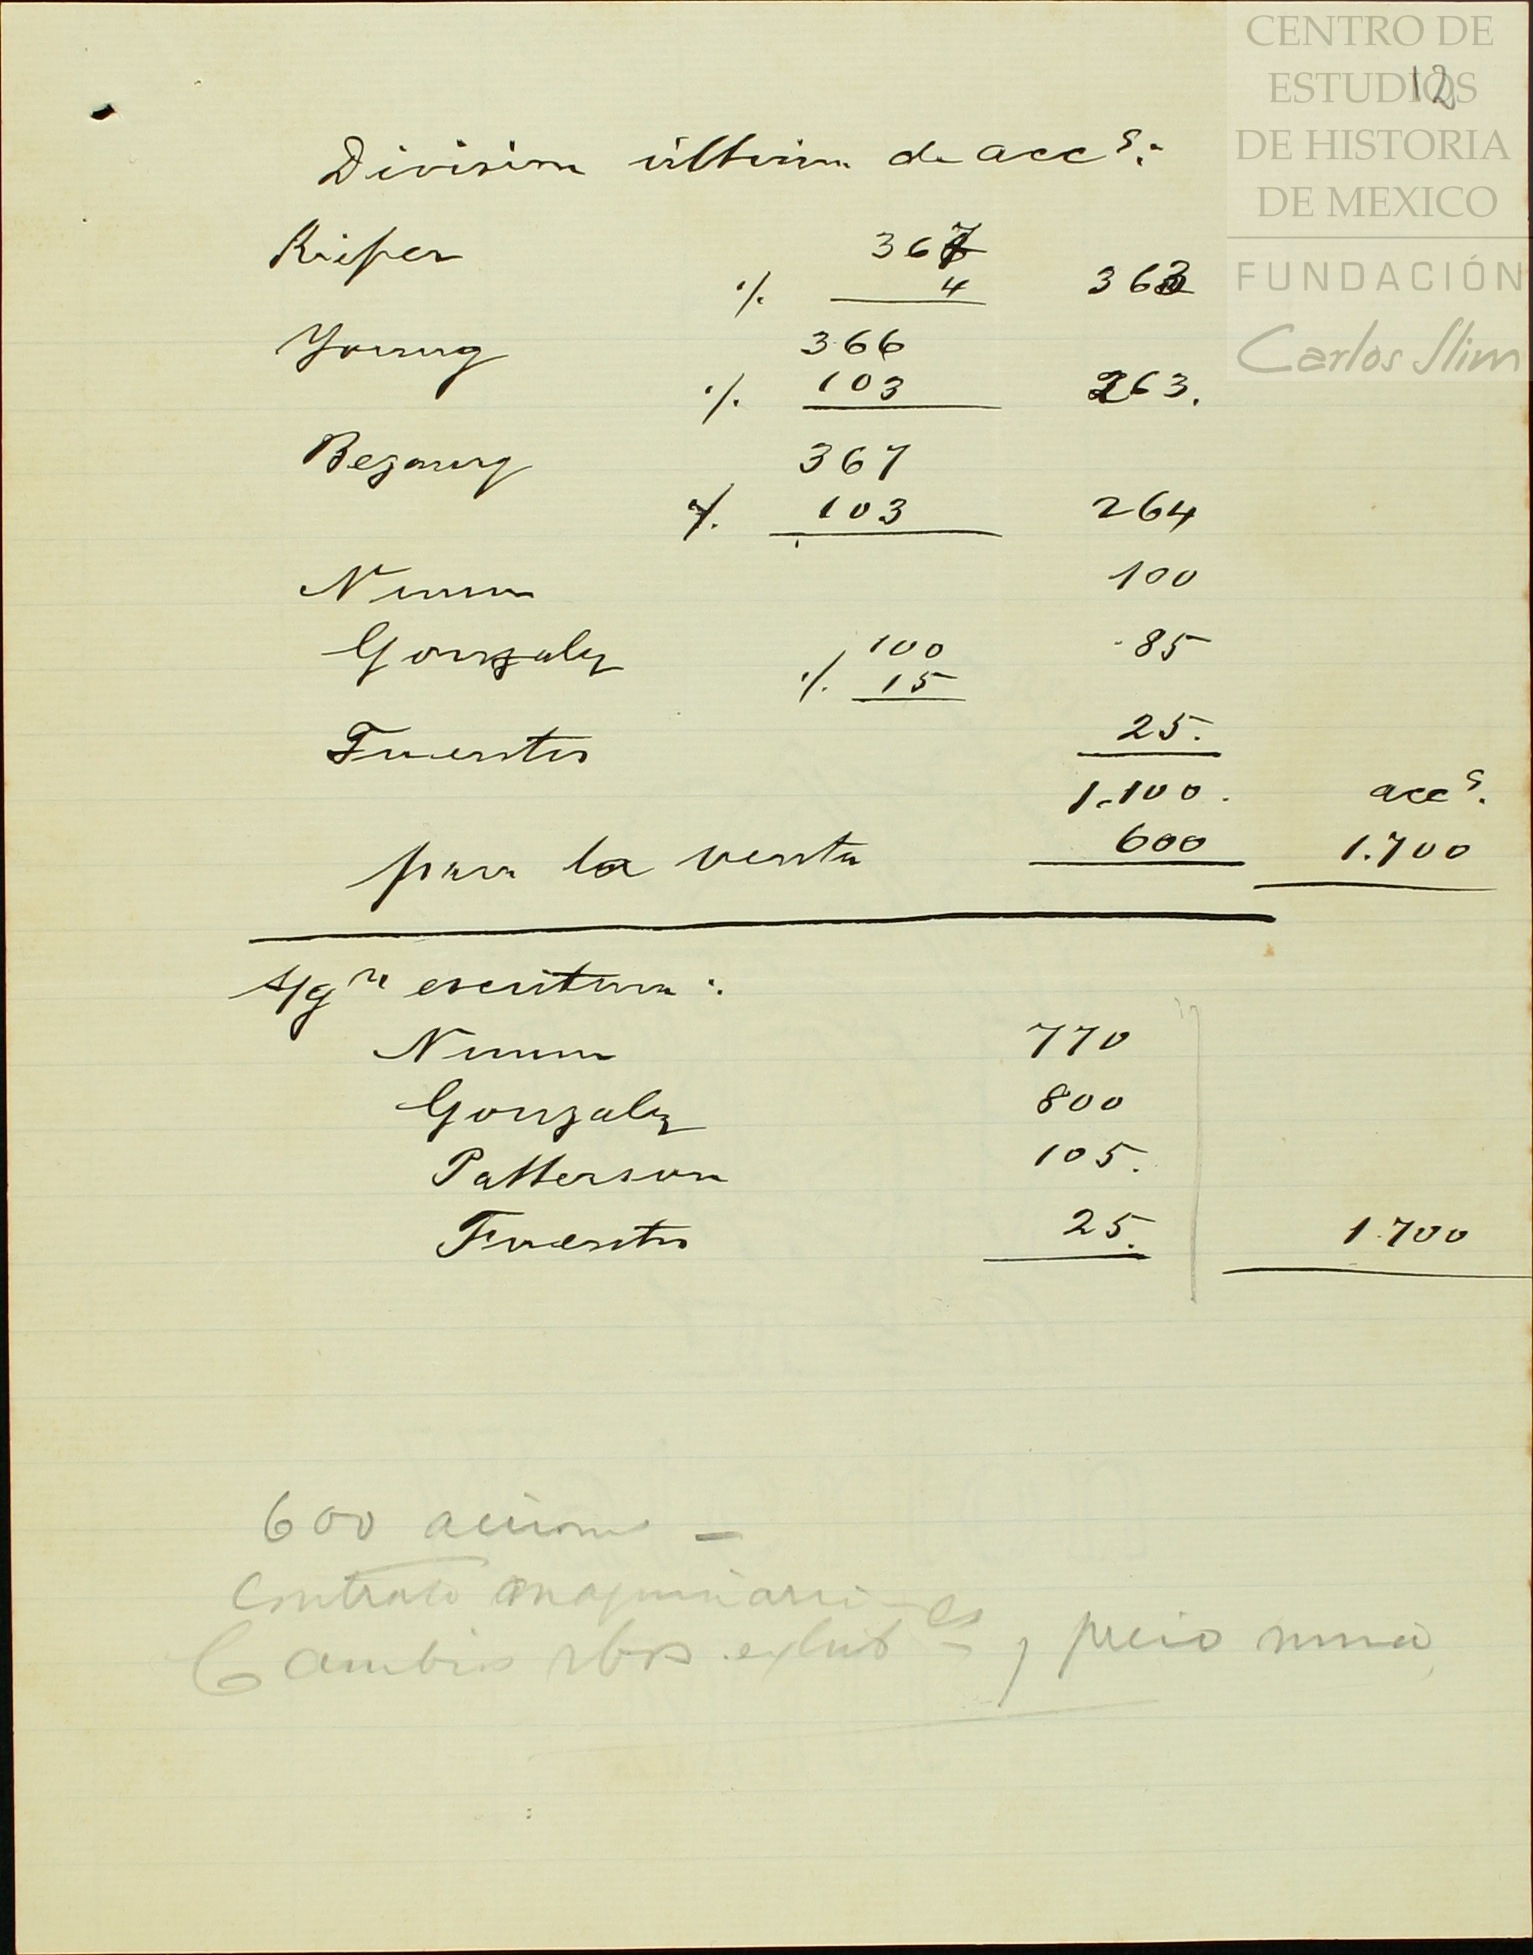 CENTRO DE
ESTUDIOS
DE HISTORIA
DE MEXICO
FUNDACIÓN
Carlos Slim
12
Division ultima de accs.:
Kieffer 367
./. 4 363
Young 366
./. 103 263.
Bezaury 367
./. 103 264
Nunn 100
Gonzalez 100 85
./. 15
Fuentes 25.
1.100. accs.
para la venta 600 1.700
S/gn escritura:
Nunn 770
Gonzalez 800
Patterson 105.
Fuentes 25. 1.700
600 acciones -
Contrato maquinaria
Cambio, precio mina